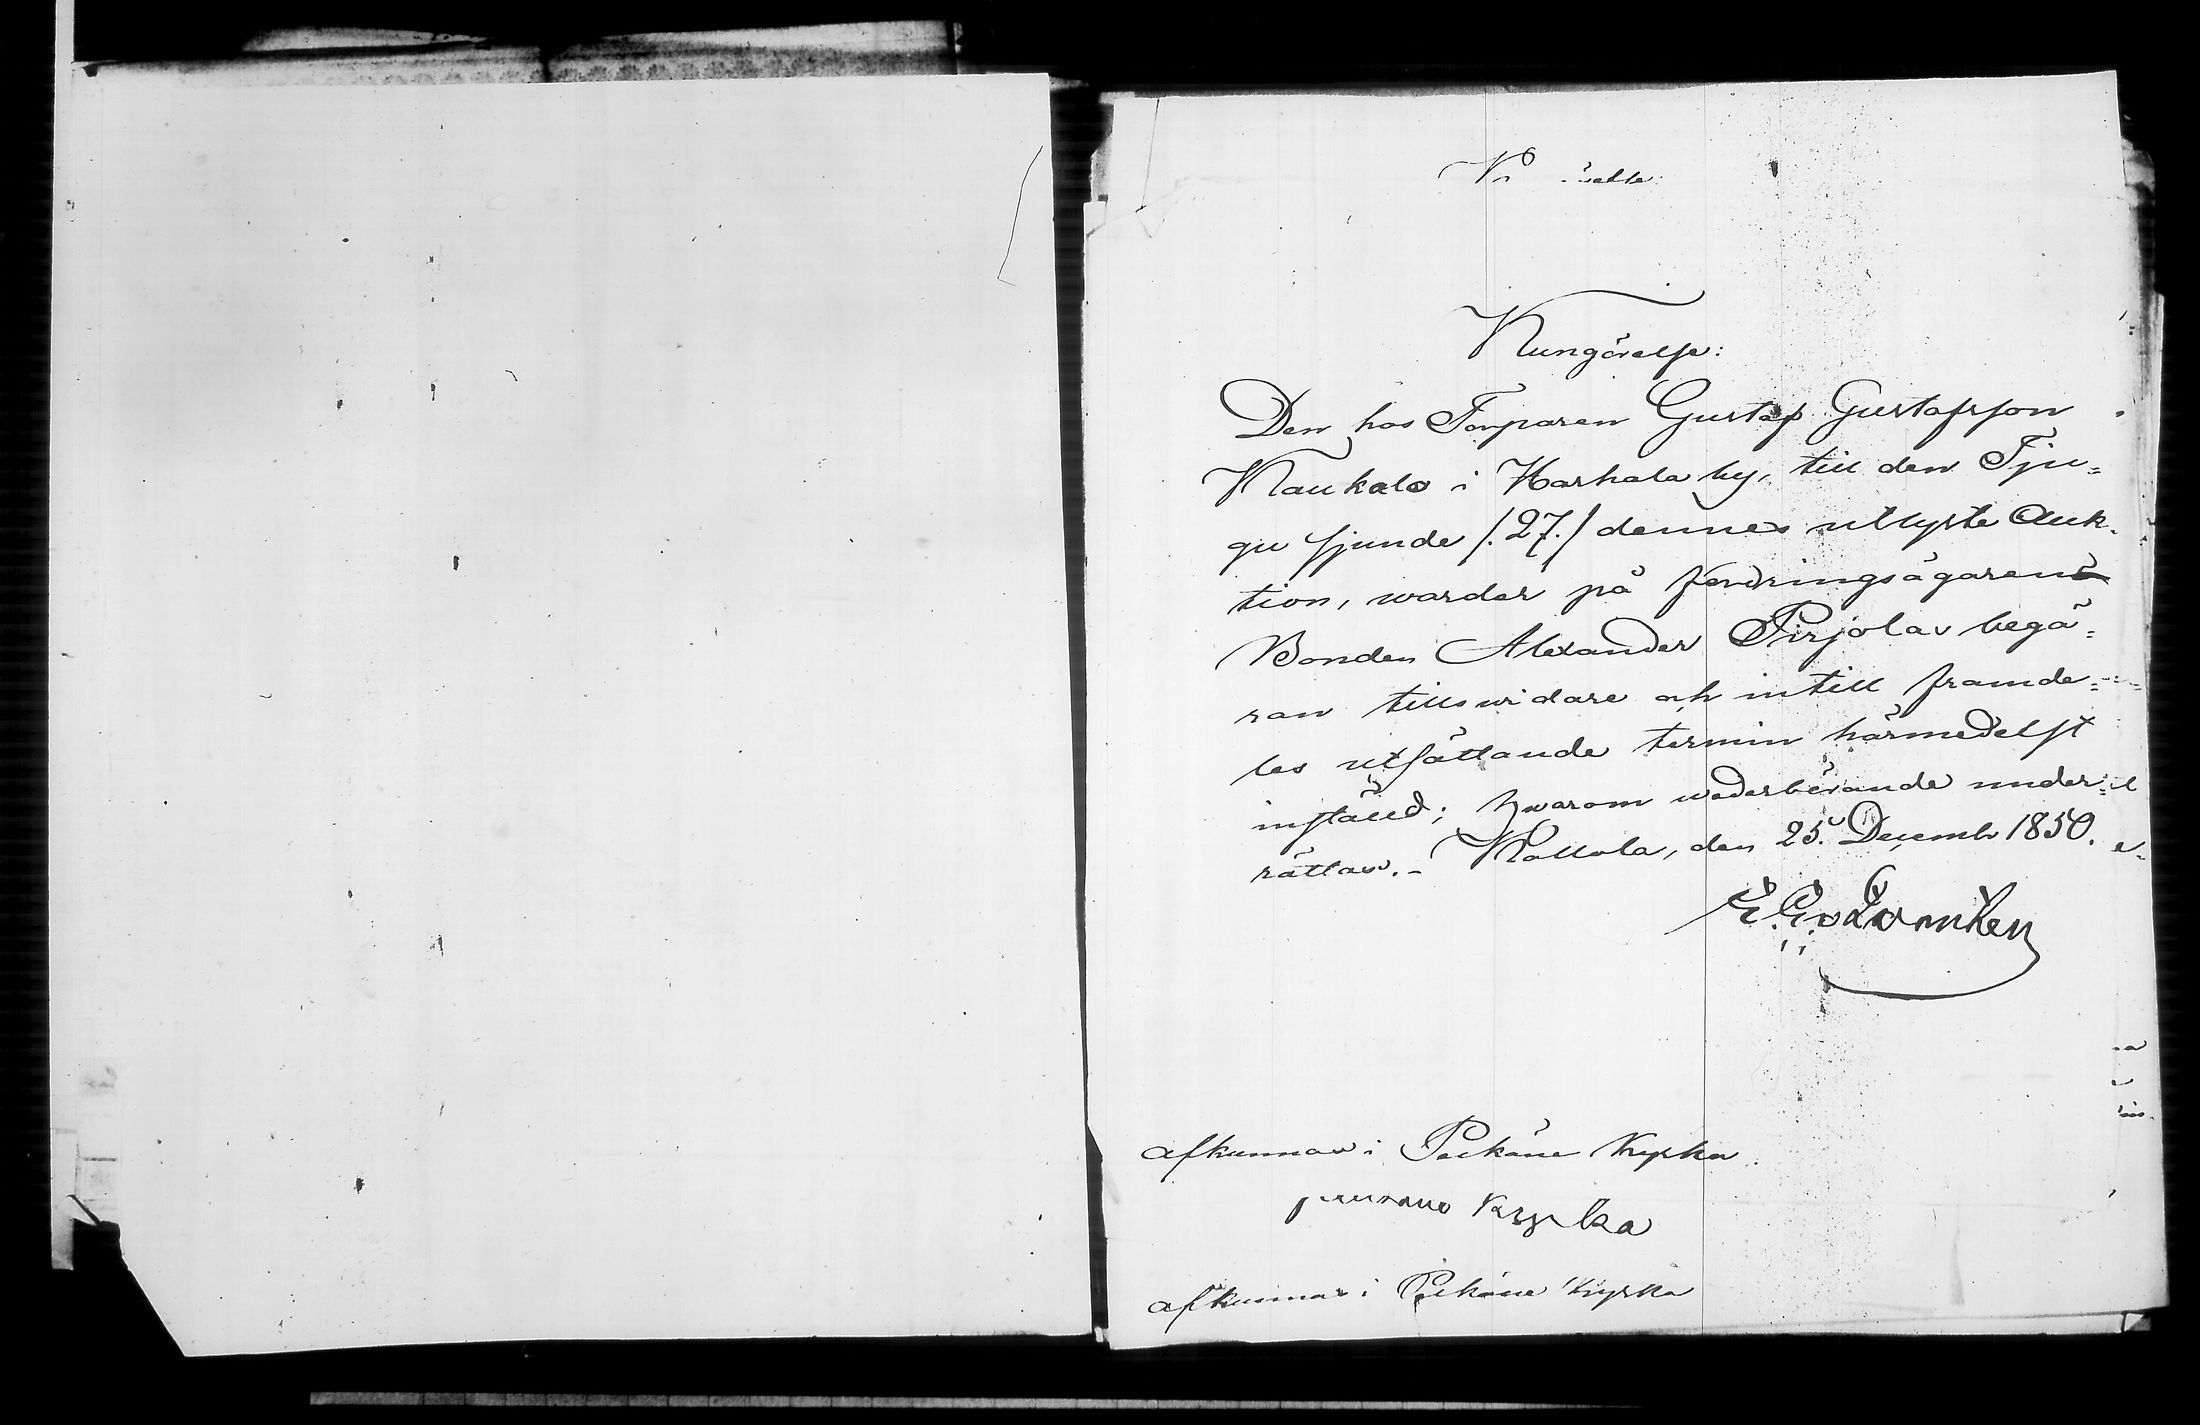 Kungörelse:
Den hos Torparen Gustaf Gustafsson
Kaukalo i Harhala by, till den Tju=
gu sjunde /:27:/ dennes utlyste Auk-
tion, warder på fordringsägarens
Bonden Alexander Pirjolas begä=
ran tillswidare och intill framde=
les utsättande termin härmedelst
inställd; hwarom wederbörande under=
rättas. – Kollola, den 25. Decemb 1850.
afkunnas i Pelkäne Kyrka
Kyrka
afkunnas i Pelkäne Kyrka